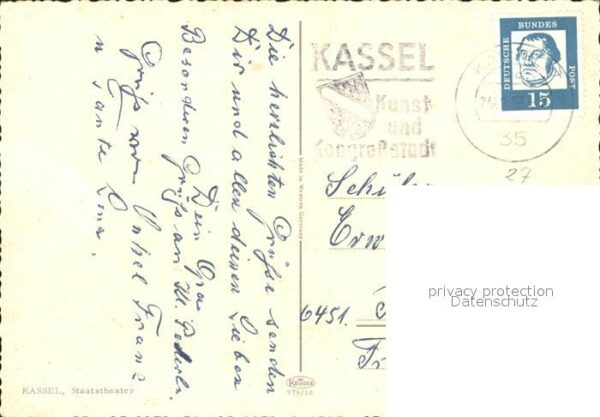 Die herzlichsten Grüße senden
Dir und allen deinen Lieben
Dein Opa
Besonderen Gruß an
Gruß von Onkel Franz
u Tante Lina.
KASSEL, Staatstheater
Made in Western Germany
975/10
KASSEL
Kunst-
und
Kongreßstadt
DEUTSCHE BUNDES POST
15
35
27
Schüler
Erw
6451.
privacy protection
Datenschutz